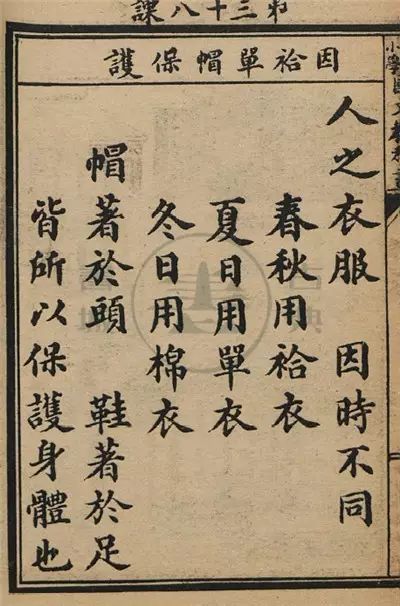 第三十八課
因袷單帽保護
人之衣服　因時不同
春秋用袷衣
夏日用單衣
冬日用棉衣
帽著於頭　鞋著於足
皆所以保護身體也